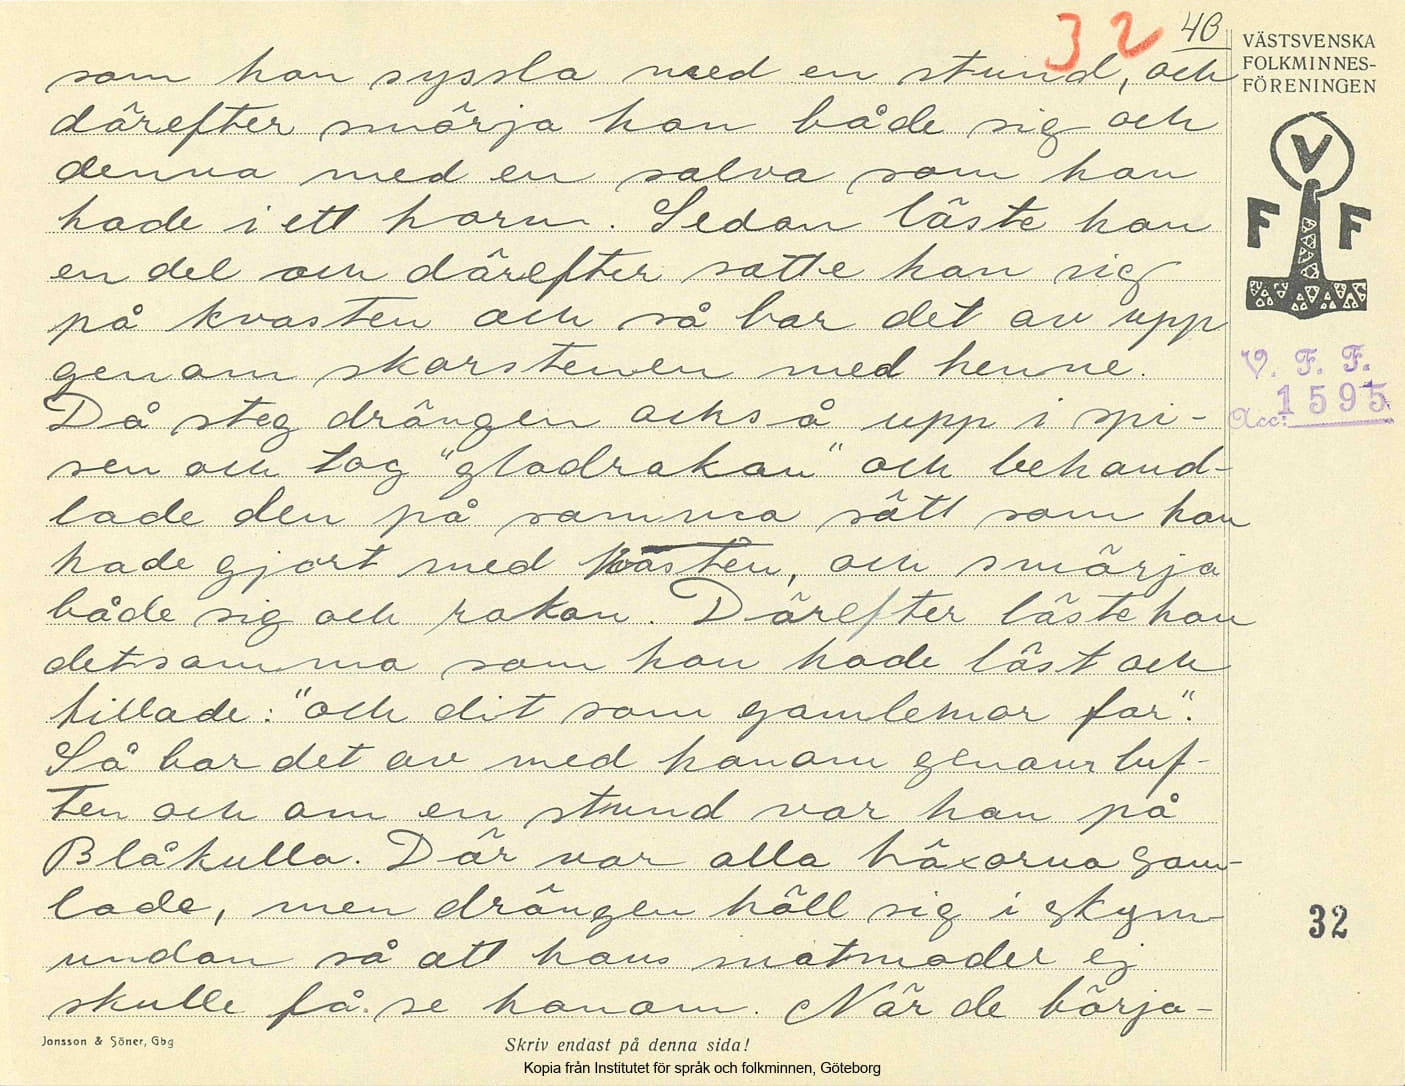 32 4B
VÄSTSVENSKA
FOLKMINNES-
FÖRENINGEN
V
F F
V. F. F.
Acc: 1595
som hon syssla med en stund, och
därefter smörja hon både sig och
denna med en salva som hon
hade i ett horn. Sedan läste hon
en del och därefter satte hon sig
på kvasten och så bar det av upp
genom skorstenen med henne.
Då steg drängen också upp i spi-
sen och tog "glodrakan" och behand-
lade den på samma sätt som hon
hade gjort med kvasten, och smörja
både sig och rakan. Därefter läste han
detsamma som hon hade läst och
tillade: "och dit som gamlemor for".
Så bar det av med honom genom luf-
ten och om en stund var han på
Blåkulla. Där var alla häxorna sam-
lade, men drängen höll sig i skym-
undan så att hans matmoder ej
skulle få se honom. När de börja-
32
Jonsson & Söner, Gbg
Skriv endast på denna sida!
Kopia från Institutet för språk och folkminnen, Göteborg